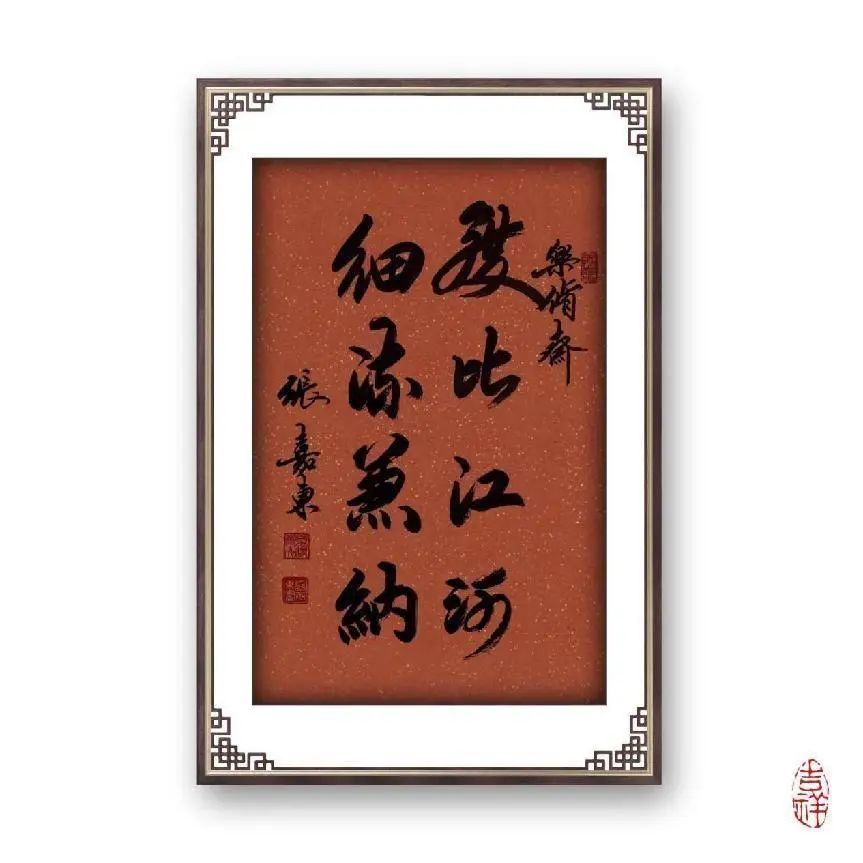 樂脩齋
度比江河
細流兼納
張嘉東
吉祥